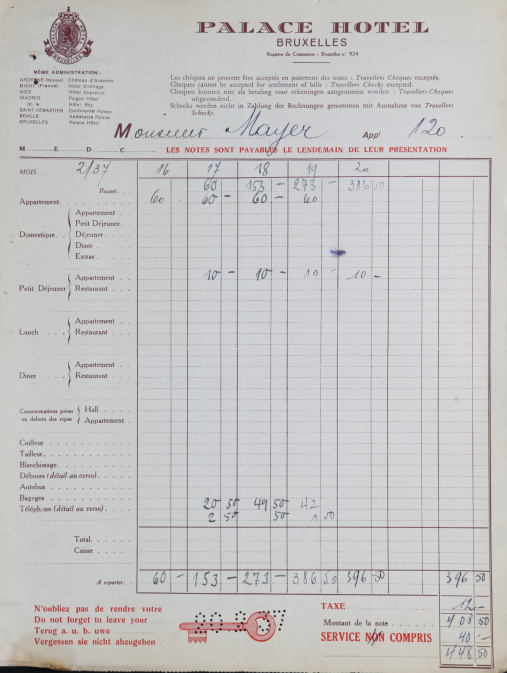 PALACE HOTEL
BRUXELLES
Registre du Commerce : Bruxelles nº 924
MÊME ADMINISTRATION :
ARDENNE (Belgique) Château d'Ardenne
BIGNY (France) Hôtel Ermitage
NICE Hôtel Negresco
MADRID Palace Hôtel
Id. Hôtel Ritz
SAINT-SÉBASTIEN Continental Palace
SEVILLE Andalucia Palace
BRUXELLES Palace Hôtel
Les chèques ne peuvent être acceptés en paiement des notes : Travellers Cheques exceptés.
Cheques cannot be accepted for settlement of bills : Travellers Checks excepted.
Cheques kunnen niet als betaling voor rekeningen aangenomen worden : Travellers-Cheques
uitgezonderd.
Schecks werden nicht in Zahlung der Rechnungen genommen mit Ausnahme von Travellers
Schecks.
Monsieur Mayer Appt 120
M E D C LES NOTES SONT PAYABLES LE LENDEMAIN DE LEUR PRÉSENTATION
MOIS 2/37 16 17 18 19 20
Report. 60 153 - 273 - 386 50
Appartement. 60 60 - 60 - 60
Domestique.
Appartement
Petit Déjeuner.
Déjeuner.
Dîner
Extras
Petit Déjeuner
Appartement 10 - 10 - 10 - 10 -
Restaurant
Lunch
Appartement
Restaurant
Diner
Appartement
Restaurant
Consommations prises en dehors des repas
Hall
Appartement
Coiffeur
Tailleur.
Blanchissage.
Débours (détail au verso).
Autobus
Bagages
Téléphone (détail au verso). 20 50 49 50 42
2 50 50 1 50
Total.
Caisse
A reporter. 60 - 153 - 273 - 386 50 396 50 396 50
N'oubliez pas de rendre votre
Do not forget to leave your
Terug a. u. b. uwe
Vergessen sie nicht abzugeben
TAXE 12 -
Montant de la note 408 50
SERVICE NON COMPRIS 40 -
448 50